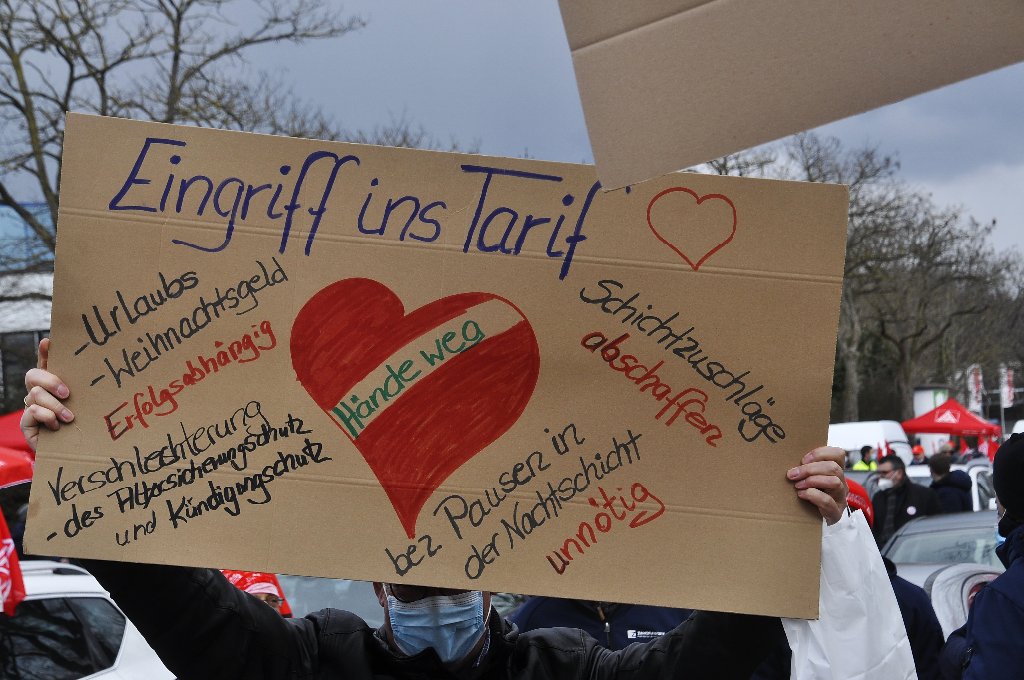 Eingriff ins Tarif
-Urlaubs
-Weihnachtsgeld
Erfolgsabhängig
Verschlechterung
-des Alterssicherungsschutz
und Kündigungsschutz
Hände weg
Schichtzuschläge
abschaffen
bez Pausen in
der Nachtschicht
unnötig